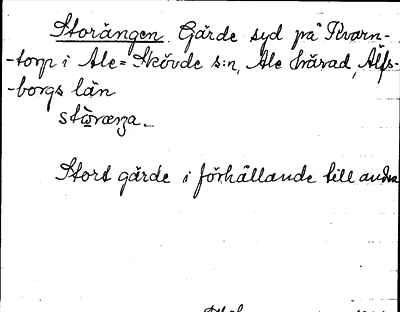 Storängen. Gärde syd på Kvarn-
-torp i Ale-Skövde s:n, Ale härad, Älfs-
-borgs län
Stort gärde i förhållande till andra